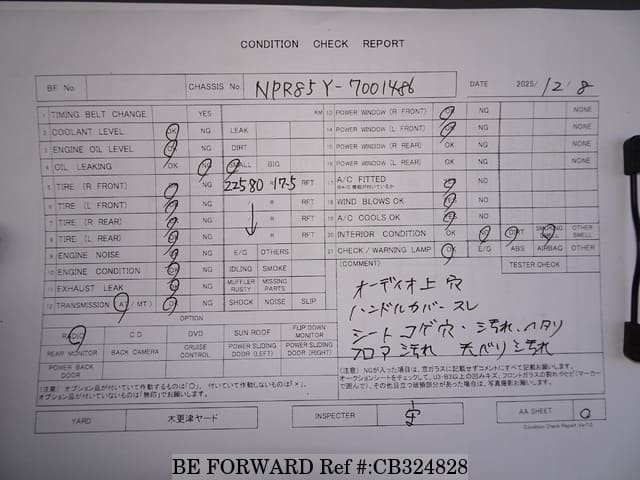 CONDITION CHECK REPORT
BF No. CHASSIS No. NPR85Y-7001486 DATE 2025/12/8
1 TIMING BELT CHANGE YES KM 13 POWER WINDOW (R FRONT) OK NG NONE
2 COOLANT LEVEL OK NG LEAK 14 POWER WINDOW (L FRONT) OK NG NONE
3 ENGINE OIL LEVEL OK NG DIRT 15 POWER WINDOW (R REAR) OK NG NONE
4 OIL LEAKING OK NG SMALL BIG 16 POWER WINDOW (L REAR) OK NG NONE
5 TIRE (R FRONT) OK NG 22580-17.5 RFT 17 A/C FITTED YES NO
6 TIRE (L FRONT) OK NG / R RFT 18 WIND BLOWS OK YES NO
7 TIRE (R REAR) OK NG / R RFT 19 A/C COOLS OK YES NO
8 TIRE (L REAR) OK NG / R RFT 20 INTERIOR CONDITION OK NG DIRT SMOKING SMELL OTHER SMELL
9 ENGINE NOISE OK NG E/G OTHERS 21 CHECK/WARNING LAMP OK E/G ABS AIRBAG OTHER
10 ENGINE CONDITION OK NG IDLING SMOKE (COMMENT) TESTER CHECK
11 EXHAUST LEAK OK NG MUFFLER RUSTY MISSING PARTS オーディオ上 穴
12 TRANSMISSION (AT/MT) OK NG SHOCK NOISE SLIP ハンドルカバー スレ
OPTION
シート コゲ穴・汚れ、ヘタリ
RADIO CD DVD SUN ROOF FLIP DOWN MONITOR
フロア 汚れ 天べり 汚れ
REAR MONITOR BACK CAMERA CRUISE CONTROL POWER SLIDING DOOR (LEFT) POWER SLIDING DOOR (RIGHT)
POWER BACK DOOR
(注意) オプション品が付いていて作動するものは「○」、付いていて作動しないものは「×」、
オプション品が付いていないものは「無印」でお願いします。
(注意) NGが入った項目は、窓ガラスに記載せずコメントにすべて記載お願いします。
YARD 木更津ヤード INSPECTER AA SHEET ○
Condition Check Report Ver.7.0
BE FORWARD Ref #:CB324828